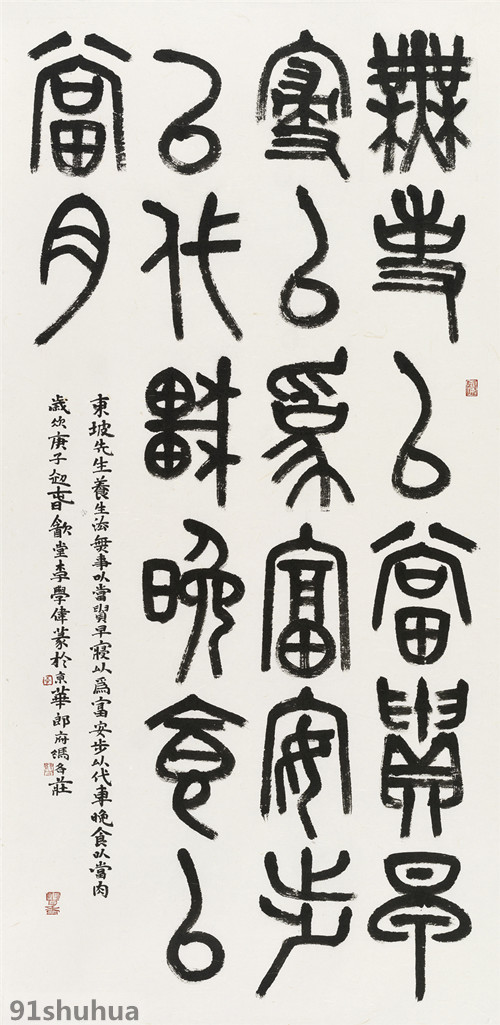 無事以當貴早
寢以爲富安步
以代車晚食以
當肉
東坡先生養生法無事以當貴早寢以爲富安步以代車晚食以當肉
歲次庚子初春歙堂李學偉篆於京華郎府各莊
91shuhua